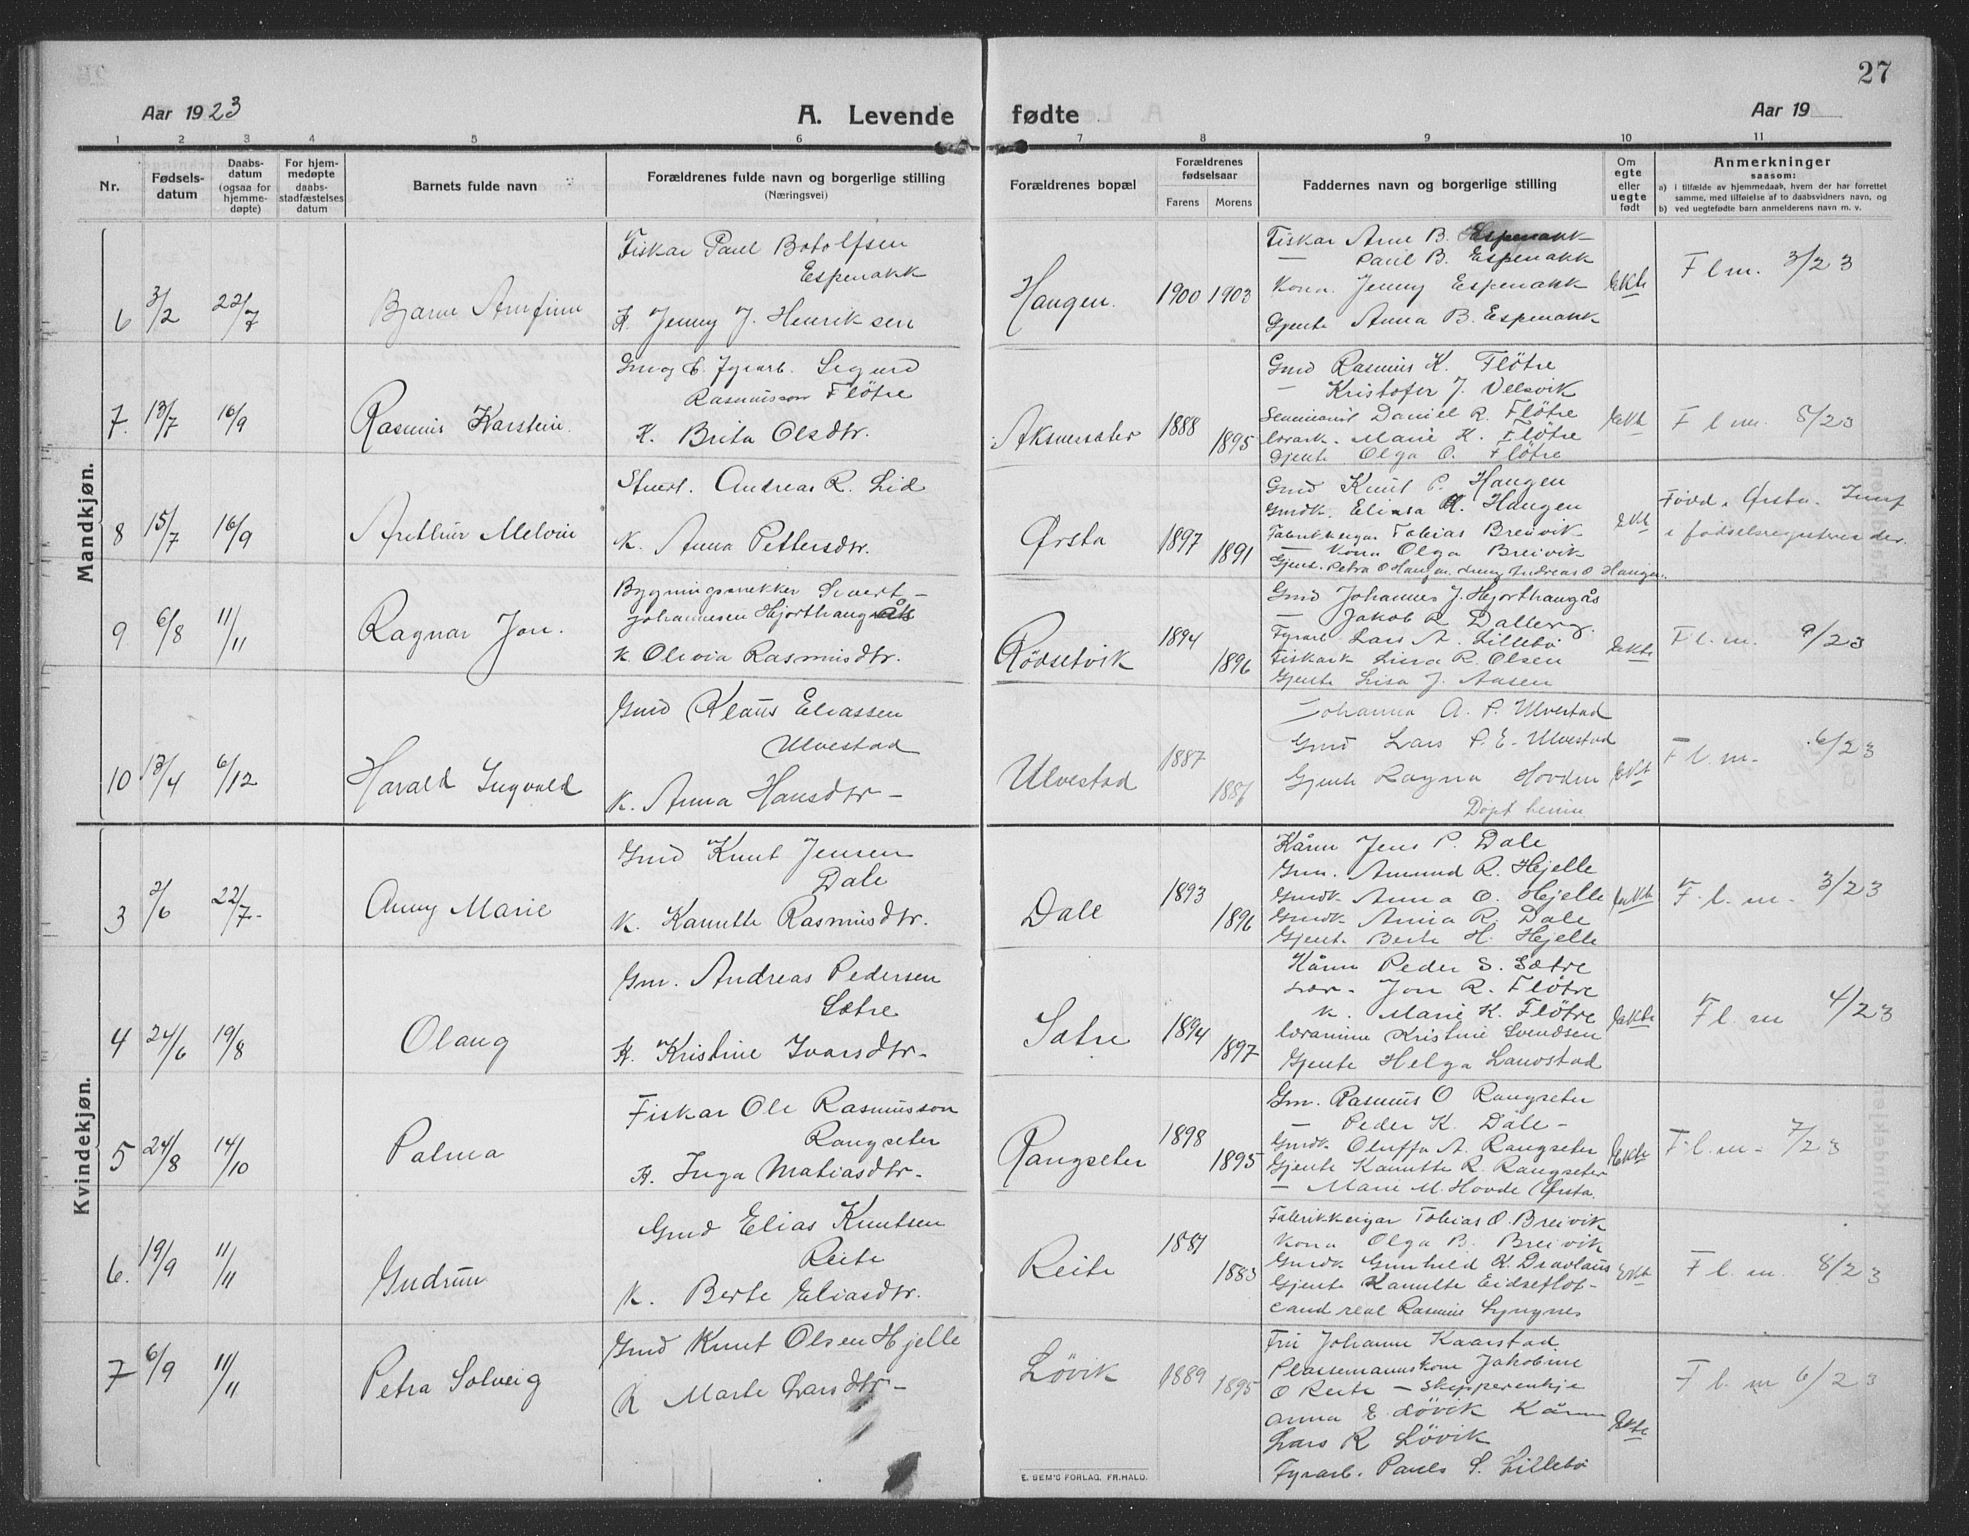 27
Aar 1923
A. Levende fødte
Aar 19
1 2 3 4 5 6 7 8 9 10 11
Nr.
Fødsels-
datum
Daabs-
datum
(ogsaa for
hjemme-
døpte)
For hjem-
medøpte
daabs-
stadfæstelses
datum
Barnets fulde navn
Forældrenes fulde navn og borgerlige stilling
(Næringsvei)
Forældrenes bopæl
Forældrenes
fødselsaar
Farens Morens
Faddernes navn og borgerlige stilling
Om
egte
eller
uegte
født
Anmerkninger
saasom:
a) i tilfælde av hjemmedaab, hvem der har forrettet
samme, med tilføielse af to daabsvidners navn, og
b) ved uegtefødte barn anmelderens navn m. v.
Mandkjøn.
6 3/2 22/7 Bjarne Arnfinn
Fiskar Paul Botolfsen
Espenakk
K. Jenny J. Henriksen
Haugen. 1900 1903
Fiskar Arne B. Espenakk
— Paul B. Espenakk
Kona Jenny Espenakk
Gjente Anna B. Espenakk
Ekte
F l m. 3/23
7. 13/7 16/9 Rasmus Karstein.
Sigurd
Rasmusson Flötre
K. Brita Olsdtr.
1888 1895
Gmd Rasmus K. Flötre
— Kristofer J. Velsvik
Daniel R. Flötre
Marie K. Flötre
Gjente Olga O. Flötre
Ekt
F l m. 5/23
8 15/7 16/9 Arthur Melvin
Stuert. Andreas R. Lid
K. Anna Pettersdtr.
Ørsta 1897 1891
Gmd Knut P. Haugen
Gmdk. Elinsa K. Haugen
Fabrikkeigar Tobias Breivik
— Kona Olga Breivik
Gjent. Petra O Haugen. Andreas O Haugen.
Ekt
Född i Ørsta. Innf
i födselsregisteret der.
9 6/8 11/11 Ragnar Jon.
Bygningssnekker Sivert
Johannesen Hjorthaugås
K. Olivia Rasmusdtr.
Rödsetvik 1894 1896
Gmd Johannes J. Hjorthaugås
— Jakob R Dalberg.
Fyrarb Lars A. Lillebö
Fiskark Lina R. Olsen
Gjente Lisa J. Aasen
Ekte
F l. m. 9/23
10 13/4 6/12 Harald Ingvald
Gmd Klaus Eliassen
Ulvestad
K. Anna Hansdtr —
Ulvestad 1887 1886
Johanna A. P. Ulvestad
Gmd Lars P. E. Ulvestad
Gjente Ragna Hovden
Döpt heime
Ekt
F l. m. 6/23
Kvindekjøn.
3 2/6 22/7. Anny Marie
Gmd Knut Jensen
Dale
K. Kanutte Rasmusdtr.
Dale 1893 1896
Kårm Jens P. Dale
Gm. Amund R. Hjelle
Gmdk Anna O. Hjelle
Gmdk Anna R. Dale
Gjente Berte H. Hjelle
Ekte
F. l. m. 3/23
4 24/6 19/8 Olaug
Gm. Andreas Pedersen
Sætre
K. Kristine Ivarsdtr.
Sætre 1894 1897
Kårm Peder S. Sætre
Lær. Jon R. Flötre
K. Marie K. Flötre
Lærarinne Kristine Svendsen
Gjente Helga Landstad
Ekte
F l. m 4/23
5 24/8 14/10 Palma
Fiskar Ole Rasmusson
Rangseter
K. Inga Matiasdtr.
Rangseter 1898 1895
Gm. Rasmus O Rangseter
— Peder K. Dale —
Gmdk Oluffa A. Rangseter
Gjente Kanutte R. Rangseter
— Marie M. Hovde (Ørsta.
Ekte
F l. m. 7/23
6. 19/9 11/11 Gudrun
Gmd Elias Knutsen
Reite
K. Berte Eliasdtr.
Reite 1881 1883
Fabrikkeigar Tobias O. Breivik
Kona Olga B. Breivik
Gmdk Gunhild K. Dravlaus
Gjente Kanutte Eidseflot
Cand real Rasmus Lyngnes
Ekt
F l. m. 8/23
7 6/9 11/11 Petra Solveig
Gmd Knut Olsen Hjelle
K Marte Larsdtr —
Lövik 1889 1895
Fru Johanne Kaarstad
Plassemannskone Jakobine
O Reite — Skipperenkje
Anna E. Lövik Kårm
Lars R Lövik
Fyrarb. Pauls S. Lillebö
Ekte
F l. m 6/23
E. SEM'S FORLAG, FR.HALD.